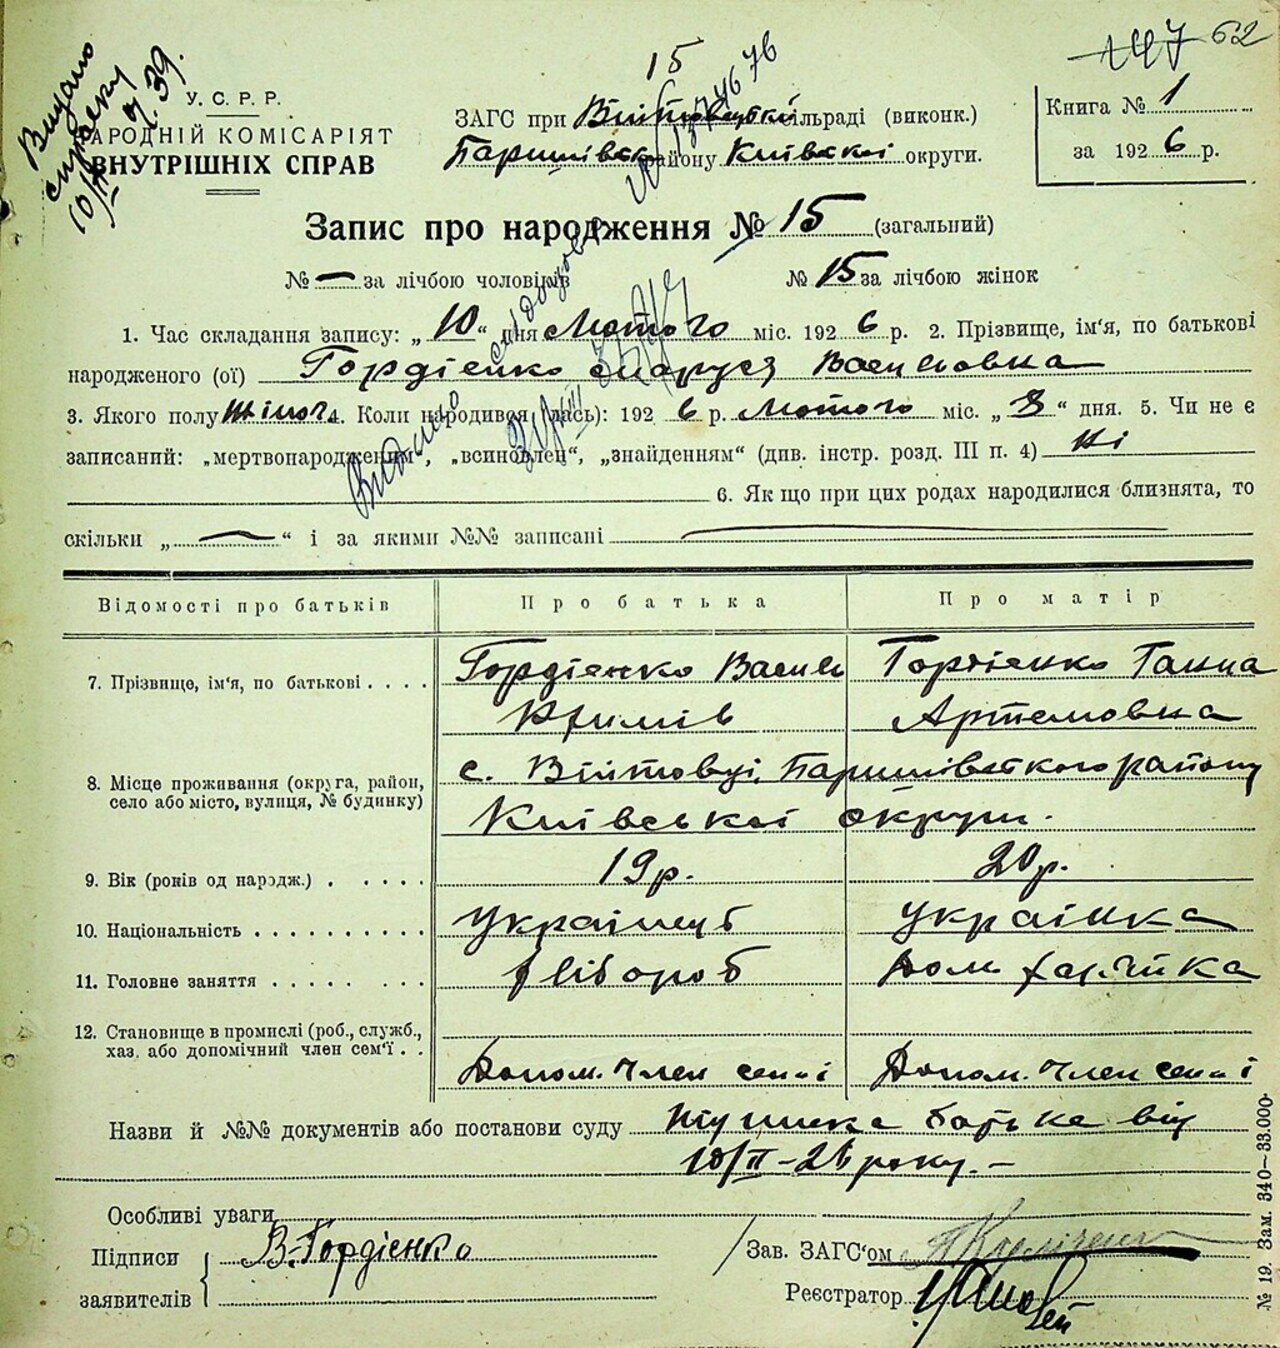 147 62
15
Видано
10/II 39.
У. С. Р. Р.
НАРОДНІЙ КОМІСАРІЯТ
ВНУТРІШНІХ СПРАВ
ЗАГС при Війтовецькій сільраді (виконк.)
Баришівськ району Київської округи.
Книга № 1
за 1926 р.
Запис про народження № 15 (загальний)
№ — за лічбою чоловіків № 15 за лічбою жінок
1. Час складання запису: „10“ дня Лютого міс. 1926 р. 2. Прізвище, ім'я, по батькові
народженого (ої) Гордієнко Маруся Васильовка
3. Якого полу жіноч. 4. Коли народився (лась): 1926 р. Лютого міс. „8“ дня. 5. Чи не є
записаний: „мертвонародженим“, „всиновлен“, „знайденням“ (див. інстр. розд. III п. 4) Ні
6. Як що при цих родах народилися близнята, то
скільки „—“ і за якими №№ записані —
Відомості про батьків Про батька Про матір
7. Прізвище, ім'я, по батькові . . . . Гордієнко Василь Гордієнко Ганна
Артемовка
8. Місце проживання (округа, район, село або місто, вулиця, № будинку) с. Війтовці, Баришівського району
Київської округи.
9. Вік (років од народж.) . . . . . 19 р. 20 р.
10. Національність . . . . . . . . . . Українець Українка
11. Головне заняття . . . . . . . . хлібороб Дом. хазяйка
12. Становище в промислі (роб., службі., хаз. або допомічний член сем'ї . . Допом. член семї Допом. член семї
Назви й №№ документів або постанови суду батька від
10/II-26 року. —
Особливі уваги
Підписи заявителів В. Гордієнко
Зав. ЗАГС'ом
Реєстратор
№ 19. Зам. 340—33.000.